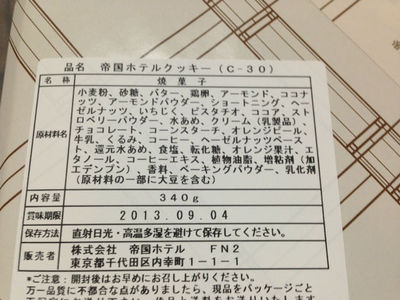 品名 帝国ホテルクッキー(C-30)
名称 焼菓子
原材料名 小麦粉、砂糖、バター、鶏卵、アーモンド、ココナ
ッツ、アーモンドパウダー、ショートニング、ヘー
ゼルナッツ、いちじく、ピスタチオ、ココア、スト
ロベリーパウダー、水あめ、クリーム(乳製品)、
チョコレート、コーンスターチ、オレンジピール、
牛乳、くるみ、コーヒー、ヘーゼルナッツペース
ト、還元水あめ、食塩、転化糖、オレンジ果汁、エ
タノール、コーヒーエキス、植物油脂、増粘剤(加
工デンプン)、香料、ベーキングパウダー、乳化剤
(原材料の一部に大豆を含む)
内容量 340g
賞味期限 2013.09.04
保存方法 直射日光・高温多湿を避けて保存してください。
販売者 株式会社 帝国ホテル FN2
東京都千代田区内幸町1-1-1
*ご注意:開封後はお早めにお召し上がりください。
万一品質に不都合な点がありましたら、現品をパッケージごと